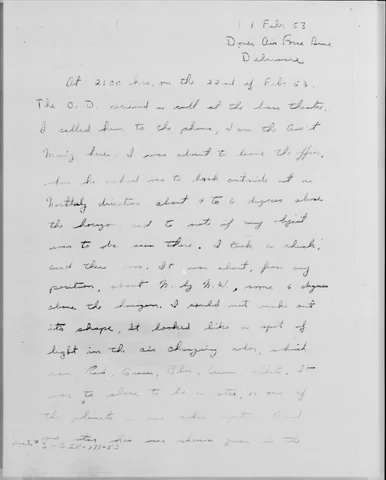 ( ) Feb 53
Dover Air Force Base
Delaware
At 2100 hrs, on the 22nd of Feb 53.
The O. D. received a call at the base theater,
I called him to the phone, I am the Ass't
Manag here. I was about to leave the office,
when he asked me to look outside at a
Northerly direction about 4 to 6 degrees above
the horizon and to note if any object
was to be seen there. I took a check,
and there was. It was about, from my
position, about N. by N.W., some 6 degrees
above the horizon. I could not make out
its shape, It looked like a spot of
light in the air changing color, which
was Red, Green, Blue, White. It
was to close to be a star, or one of
the planets in our solar system. And
no star has ever shown green in the